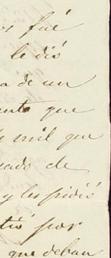 fué
le dió
a de un
anto que
mil que
uado de
y les pidió
tió por
que deban